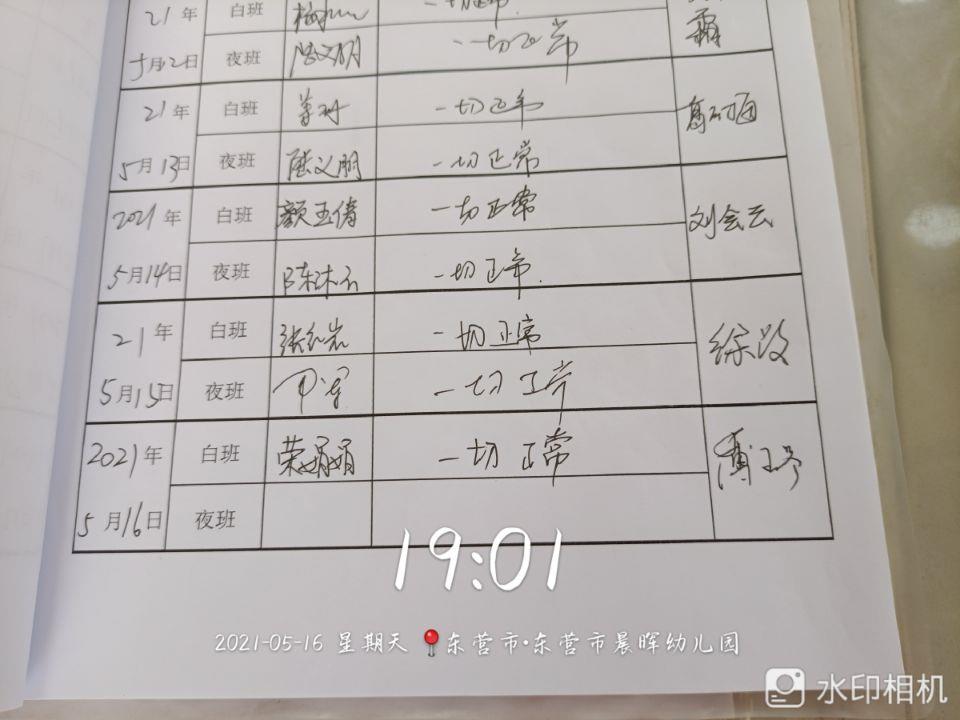 21年 白班 一切正常
5月12日 夜班 陆文明 一切正常 霜
21年 白班 一切正常
5月13日 夜班 陆文明 一切正常
2021年 白班 颜玉倩 一切正常 刘会云
5月14日 夜班 一切正常
21年 白班 张红岩 一切正常
5月15日 夜班 一切正常
2021年 白班 荣娟娟 一切正常
5月16日 夜班
19:01
2021-05-16 星期天 东营市·东营市晨晖幼儿园
水印相机